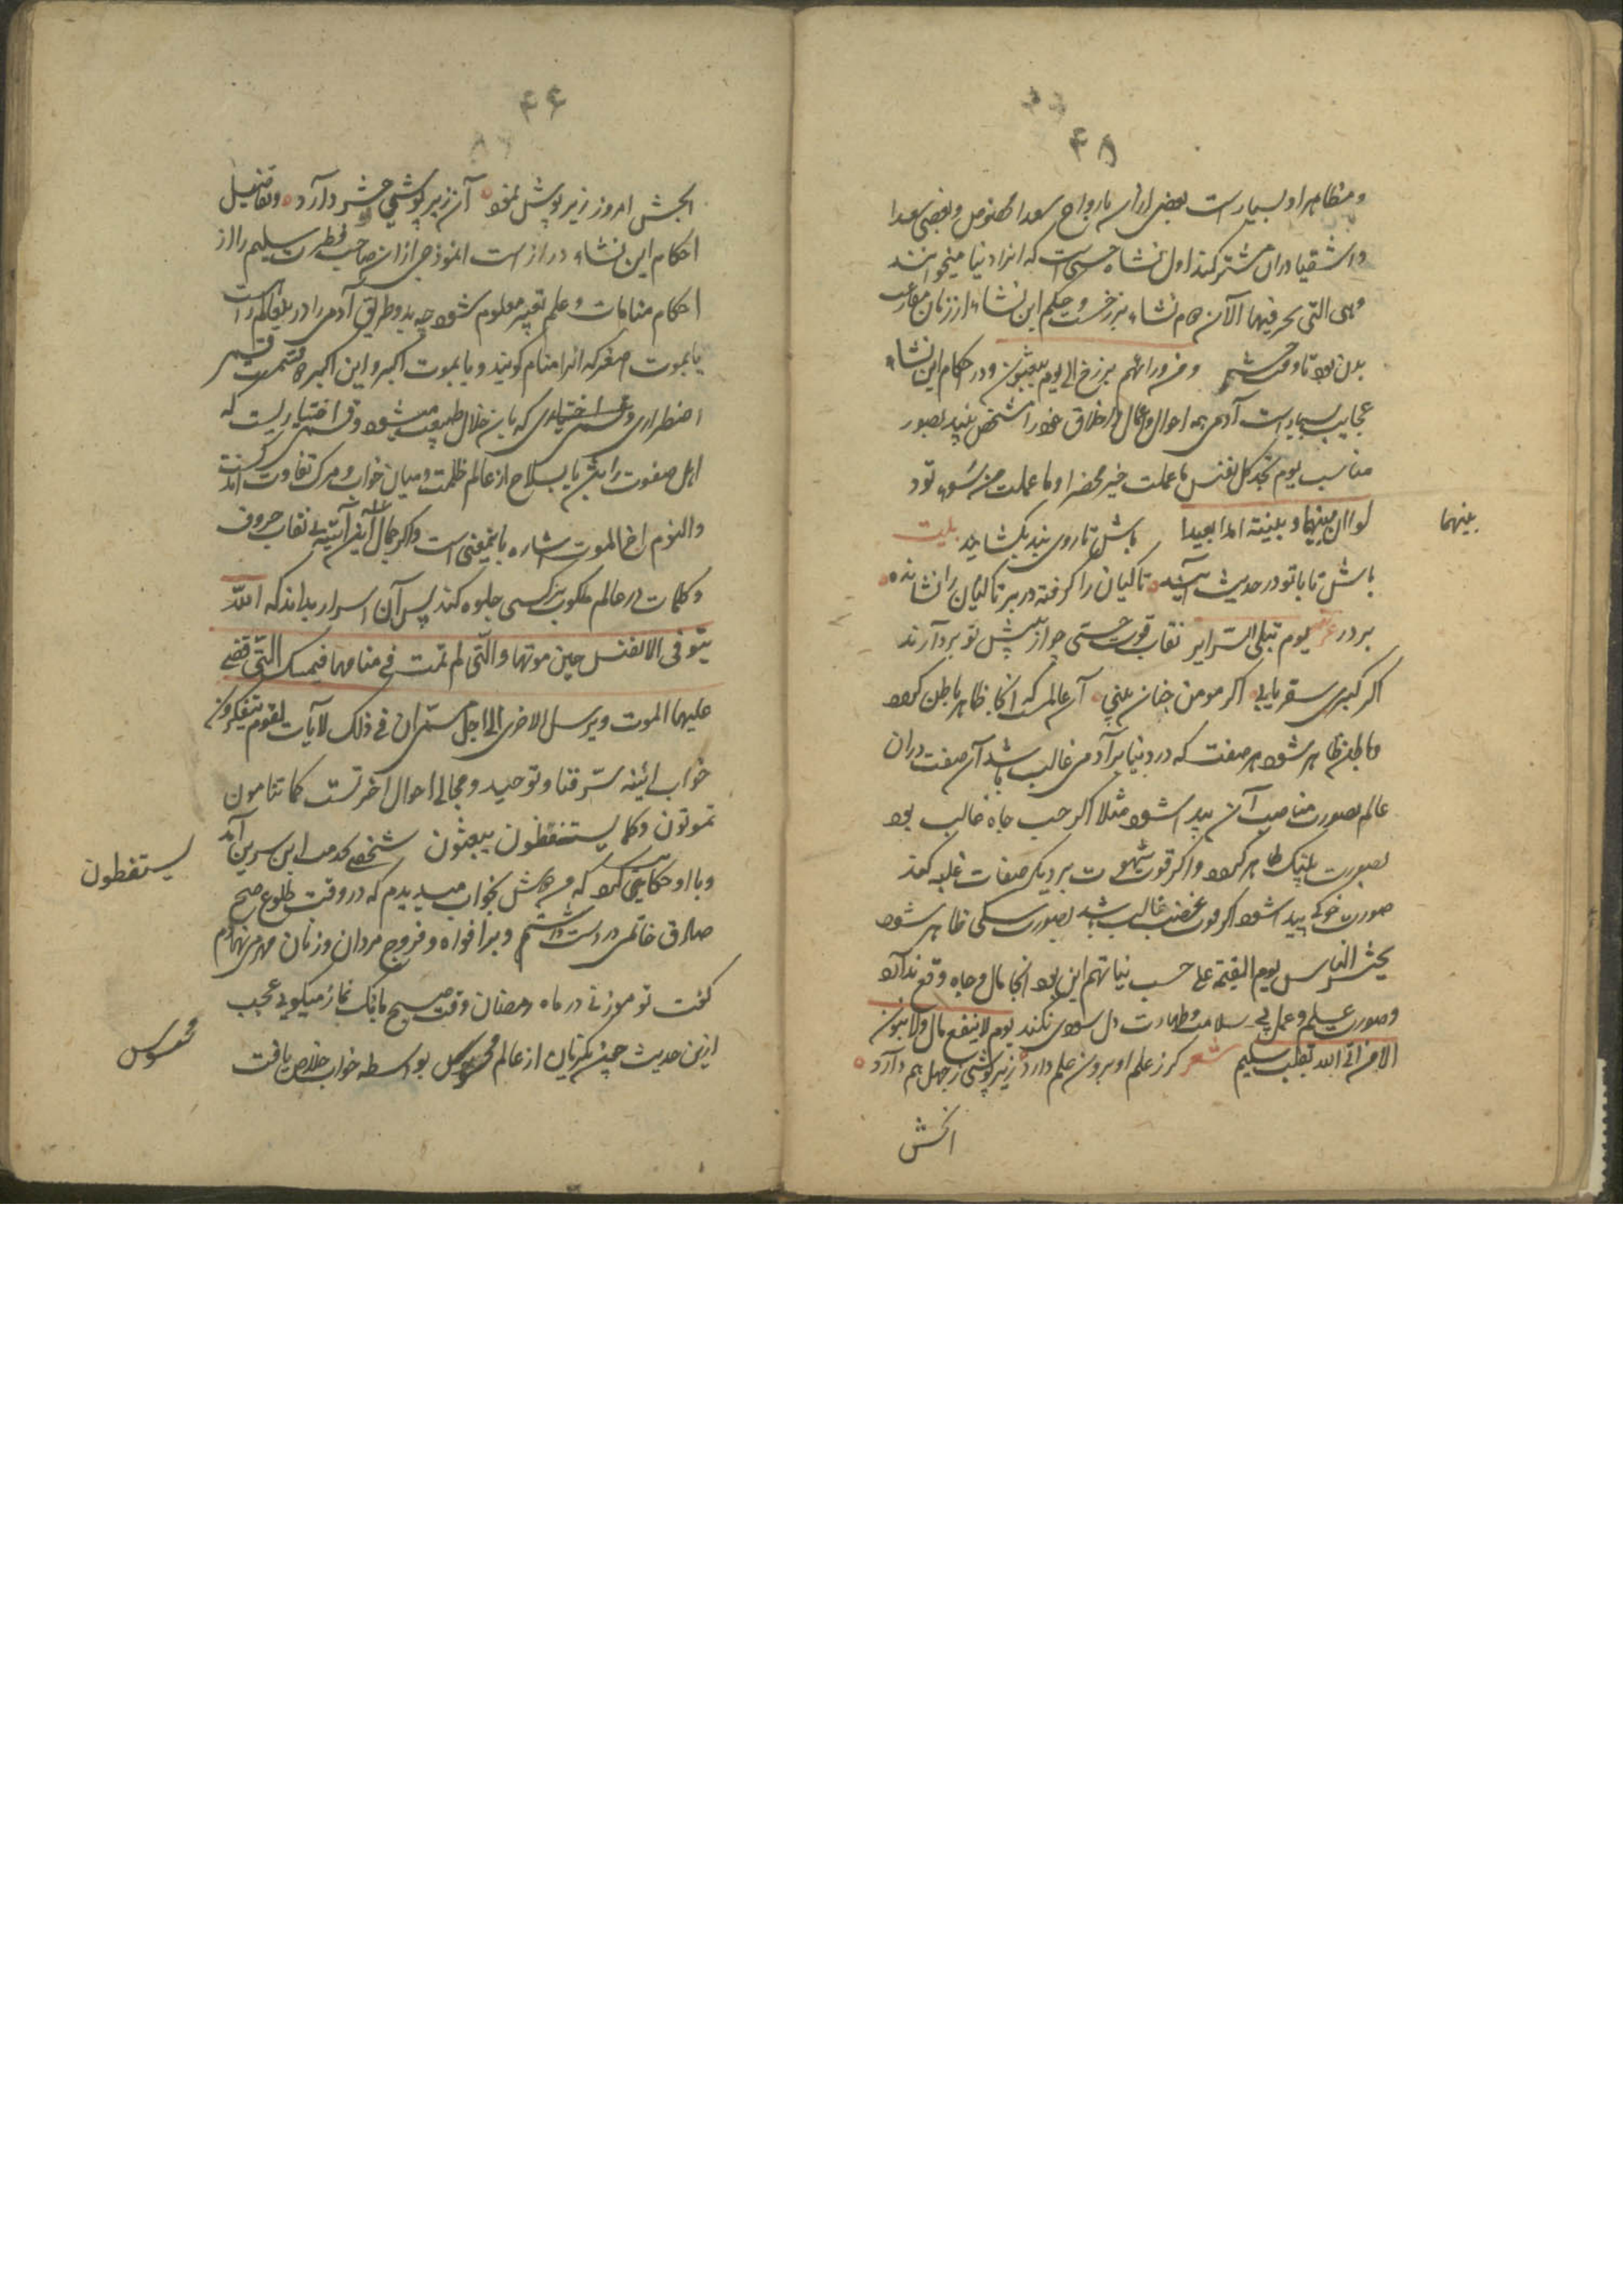 ۴۵
و مظاهر او بسیار است بعضی ازان بارواح سعدا مخصوص و بعضی سعدا
و اشقیا دران مشترکند اول نشاه حسی است که انرا دنیا میخوانند
وهی التی نحن فیها الآن دوم نشاء برزخست و حکم این نشاء از زمان مفارقت
بدن بود تا وقت حشر و من ورائهم برزخ الی یوم یبعثون و در احکام این نشاء
عجایب بسیار است آدمی همه احوال و اعمال و اخلاق خود را مشخص بیند بصور
مناسب یوم تجد کل نفس ما عملت خیر محضرا و ما عملت من سوء تود
لو ان بینها و بینه امدا بعیدا باش تا روی بند بکشایند بیت
بینهما
باش تا با تو در حدیث آیند تا کیان را گرفته در بر تا کیان را نشانده
بر در یوم تبلی السرایر نقاب قوت حسی چو از پیش تو بردارند
اگر گبری سقر یابی اگر مومن جنان بینی آن عالمست که انجا ظاهر باطن گردد
و باطن ظاهر شود هر صفت که در دنیا بر آدمی غالب باشد آن صفت دران
عالم بصورت مناسب آن پیدا شود مثلا اگر حب جاه غالب بود
بصورت پلنگ ظاهر گردد و اگر قوت شهوت بر دیگر صفات غلبه کند
صورت خوکی پیدا شود اگر قوت غضب غالب باشد بصورت سگی ظاهر شود
یحشر الناس یوم القیمة علی حسب نیاتهم این بود انجا مال و جاه وقع ندارد
و صورت علم و عمل بی سلامت و طهارت دل سودی نکند یوم لا ینفع مال و لا بنون
الا من اتی الله بقلب سلیم شعر کرز علم او برون علم دارد زیر پوشی ز جهل هم دارد
انخش
۴۶
انخش امروز زیر پوشش نمود آن زیر پوشی حشر دارد و تفاصیل
احکام این نشاء دراز است انموذجی ازان صاحب فطرت سلیم را از
احکام منامات و علم تعبیر معلوم شود چه بدو طریق آدمی را در بقا کم راست
یا بموت اصغر که انرا منام گویند و یا بموت اکبر و این اکبر دو قسمست قسمی
اضطراری و قسمی اختیاری که باین خلال طبیعت میشود و قسمی اختیاریست که
اهل صفوت را پیش یا بسلاح از عالم ظلمت و میان خواب و مرگ تفاوت اندکست
والنوم اخ الموت اشاره باینمعنی است و اگر جمال این آیه بی نقاب حروف
و کلمات در عالم ملکوت بر کسی جلوه کند پس آن اسرار بداند که الله
یتوفی الانفس حین موتها والتی لم تمت فی منامها فیمسک التی قضی
علیها الموت و یرسل الاخری الی اجل مسمی ان فی ذلک لآیات لقوم یتفکرون
خواب آئینه سر فنا و توحید و مجالی احوال آخرتست کما تنامون
تموتون و کما یستنقظون یبعثون شخصی بخدمت ابن سیرین آمد
یستقظون
و با او حکایتی کرد که من دوش بخواب میدیدم که در وقت طلوع صبح
صادق خاتمی در دست داشتم و بر افواه و فروج مردان و زنان مهر می نهادم
گفت تو موزنی در ماه رمضان وقت صبح بانک نماز میگویی عجب
ازین حدیث چنین که زبان از عالم محسوس بواسطه خواب خلاص یافت
محسوس